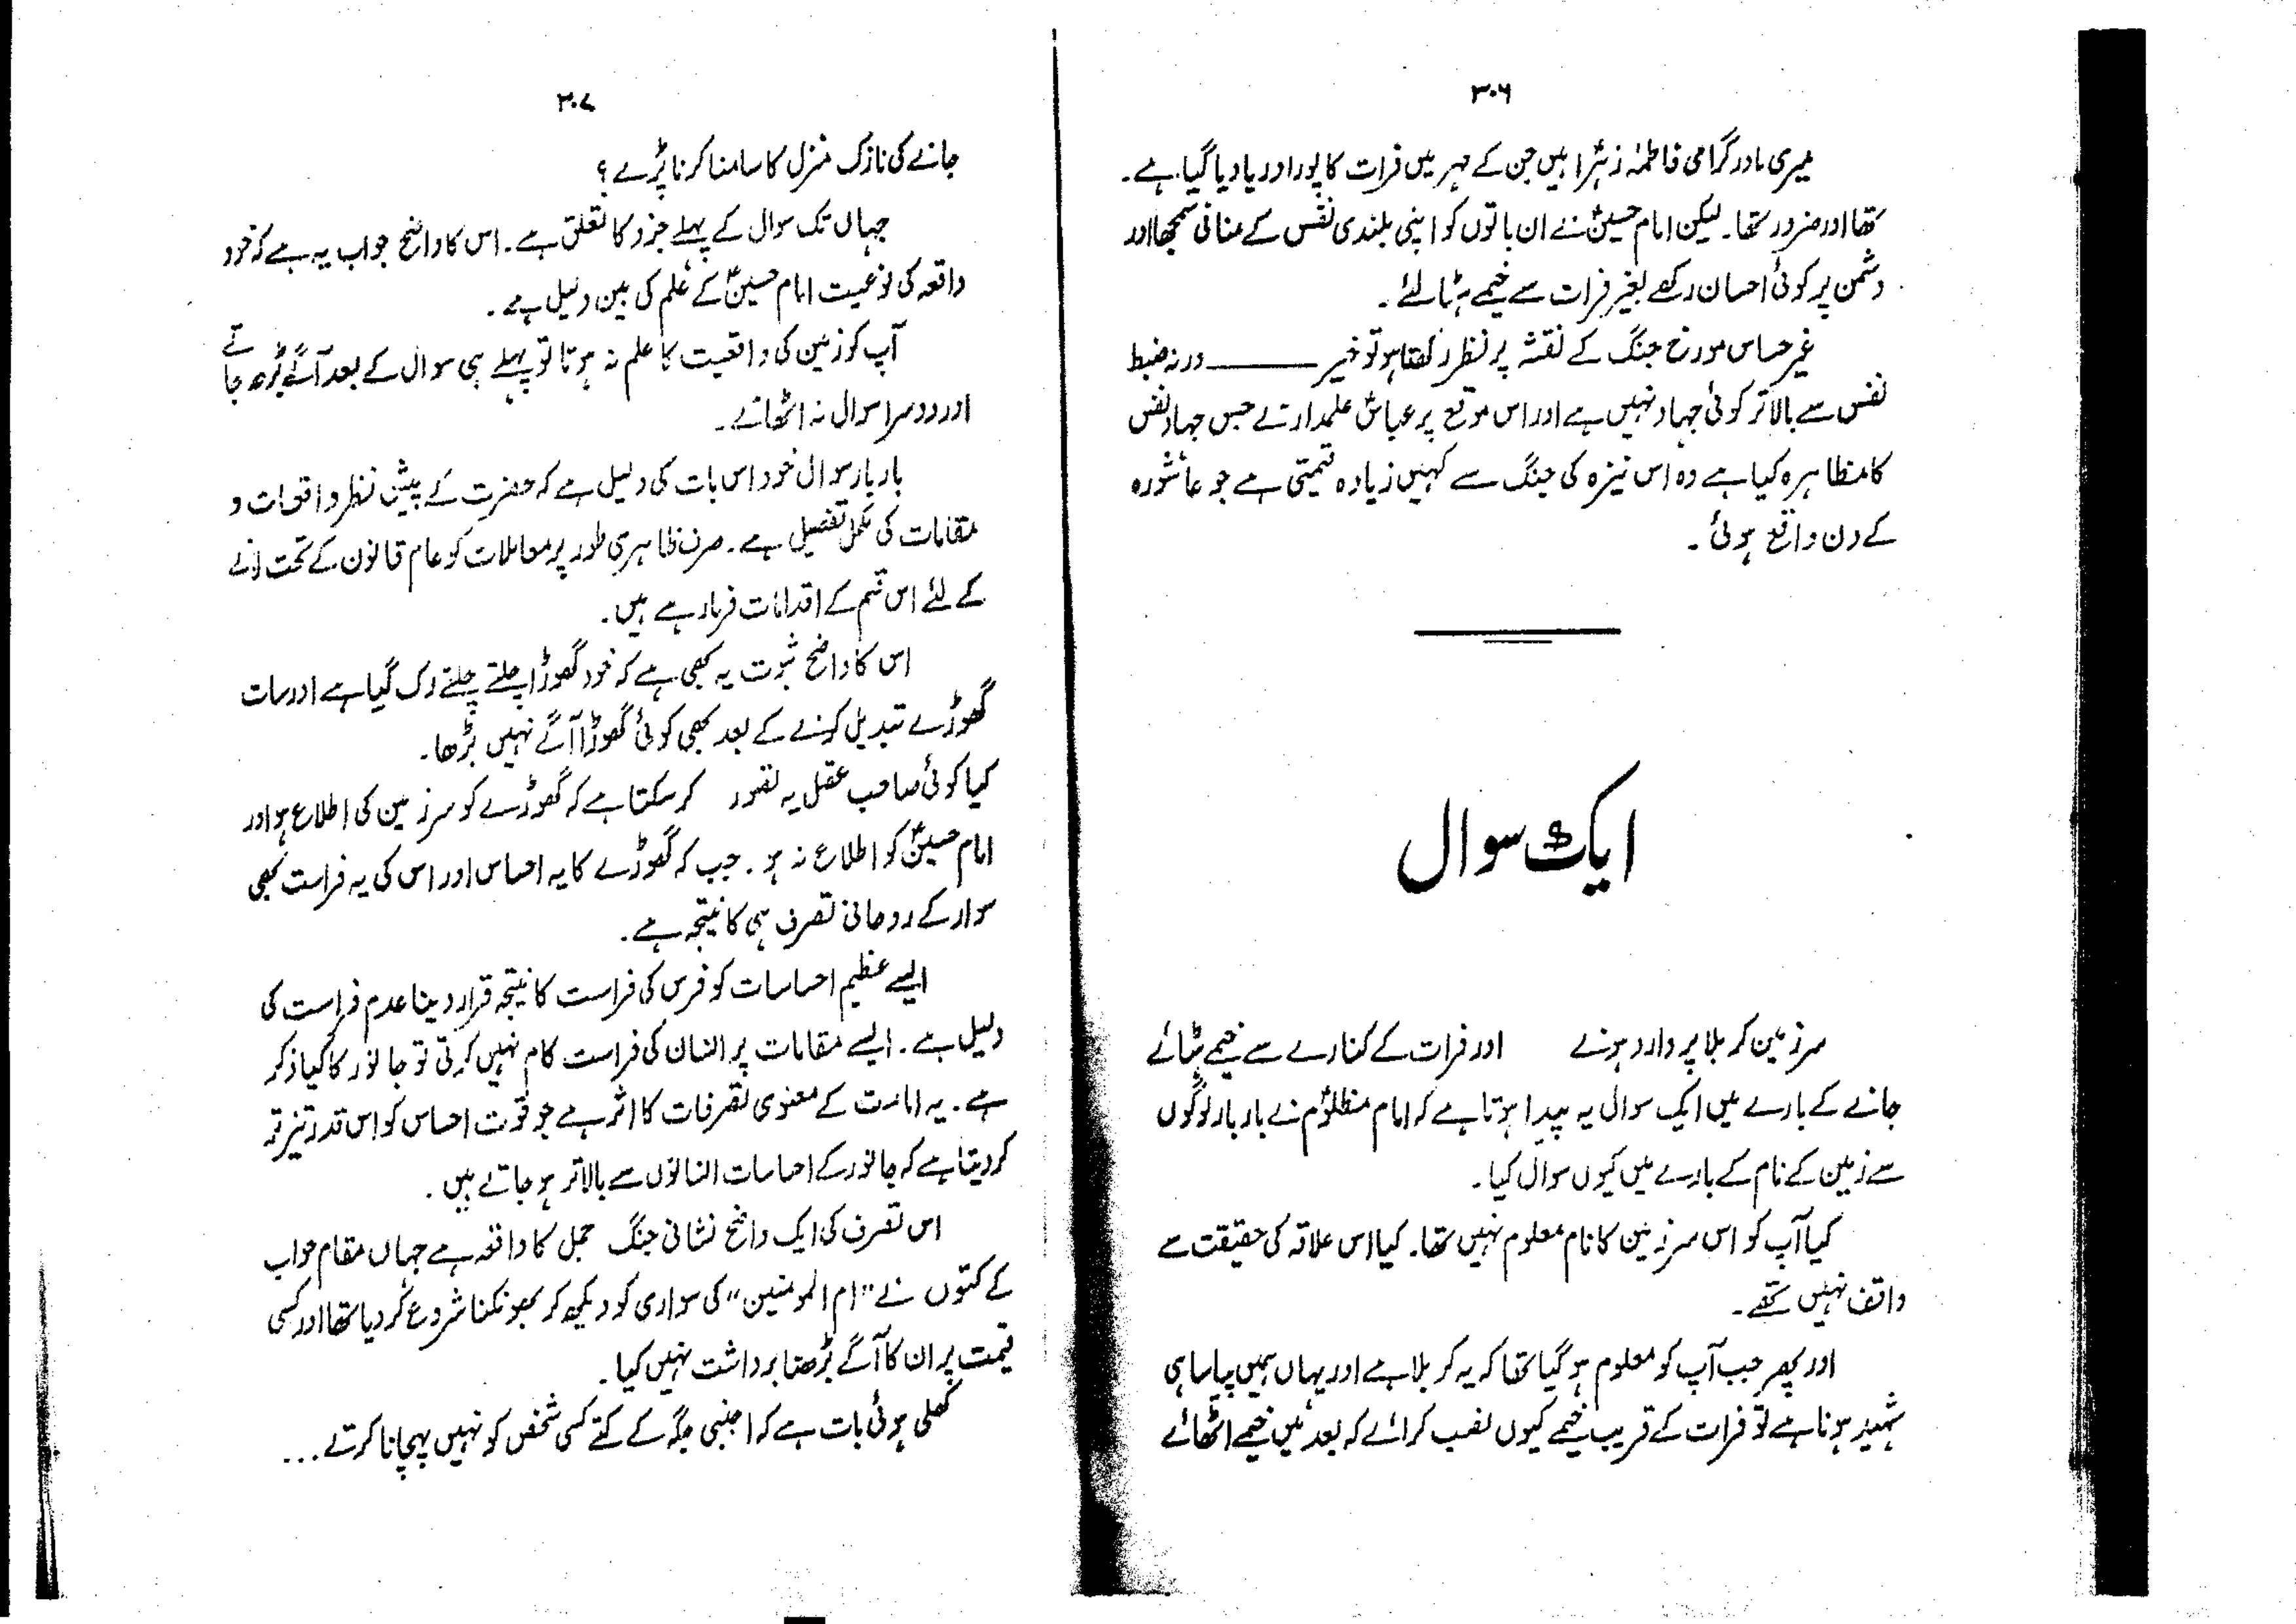 ۳۰۶
میری مادر گرامی فاطمہؑ زہرؑا ہیں جن کے مہر میں فرات کا پورا دریا دیا گیا ہے۔
تھا اور ضرور تھا۔ لیکن امام حسینؑ نے ان باتوں کو اپنی بلندی نفس کے منافی سمجھا اور
دشمن پر کوئی احسان رکھے بغیر فرات سے خیمے ہٹا لئے۔
غیر حساس مورخ جنگ کے نقشہ پر نظر رکھتا ہو تو خیر ——— ورنہ ضبط
نفس سے بالاتر کوئی جہاد نہیں ہے اور اس موقع پر عباسؑ علمدار نے جس جہاد نفس
کا مظاہرہ کیا ہے وہ اس نیزہ کی جنگ سے کہیں زیادہ قیمتی ہے جو عاشورہ
کے دن واقع ہوئی۔
ایک سوال
سرزمین کربلا پر وارد ہونے اور فرات کے کنارے سے خیمے ہٹائے
جانے کے بارے میں ایک سوال یہ پیدا ہوتا ہے کہ امام مظلومؑ نے بار بار لوگوں
سے زمین کے نام کے بارے میں کیوں سوال کیا۔
کیا آپ کو اس سرزمین کا نام معلوم نہیں تھا۔ کیا اس علاقہ کی حقیقت سے
واقف نہیں تھے۔
اور پھر جب آپ کو معلوم ہو گیا تھا کہ یہ کربلا ہے اور یہاں ہمیں پیاسا ہی
شہید ہونا ہے تو فرات کے قریب خیمے کیوں نصب کرائے کہ بعد میں خیمے اٹھائے
۳۰۷
جانے کی نازک منزل کا سامنا کرنا پڑے؟
جہاں تک سوال کے پہلے جزو کا تعلق ہے۔ اس کا واضح جواب یہ ہے کہ خود
واقعہ کی نوعیت امام حسینؑ کے علم کی بین دلیل ہے۔
آپ کو زمین کی واقعیت کا علم نہ ہوتا تو پہلے ہی سوال کے بعد آگے بڑھ جاتے
اور دوسرا سوال نہ اٹھاتے۔
بار بار سوال خود اس بات کی دلیل ہے کہ حضرت کے پیش نظر واقعات و
مقامات کی مکمل تفصیل ہے۔ صرف ظاہری طور پر معاملات کو عام قانون کے تحت لانے
کے لئے اس قسم کے اقدامات فرما رہے ہیں۔
اس کا واضح ثبوت یہ بھی ہے کہ خود گھوڑا چلتے چلتے رک گیا ہے اور سات
گھوڑے تبدیل کرنے کے بعد بھی کوئی گھوڑا آگے نہیں بڑھا۔
کیا کوئی صاحب عقل یہ تصور کر سکتا ہے کہ گھوڑے کو سرزمین کی اطلاع ہو اور
امام حسینؑ کو اطلاع نہ ہو۔ جب کہ گھوڑے کا یہ احساس اور اس کی یہ فراست بھی
سوار کے روحانی تصرف ہی کا نتیجہ ہے۔
ایسے عظیم احساسات کو فرس کی فراست کا نتیجہ قرار دینا عدم فراست کی
دلیل ہے۔ ایسے مقامات پر انسان کی فراست کام نہیں کرتی تو جانور کا کیا ذکر
ہے۔ یہ امامت کے معنوی تصرفات کا اثر ہے جو قوت احساس کو اس قدر تیز تر
کر دیتا ہے کہ جانور کے احساسات انسانوں سے بالاتر ہو جاتے ہیں۔
اس تصرف کی ایک واضح نشانی جنگ جمل کا واقعہ ہے جہاں مقام حواب
کے کتوں نے "ام المومنین" کی سواری کو دیکھ کر بھونکنا شروع کر دیا تھا اور کسی
قیمت پر ان کا آگے بڑھنا برداشت نہیں کیا۔
کھلی ہوئی بات ہے کہ اجنبی جگہ کے کتے کسی شخص کو نہیں پہچانا کرتے...